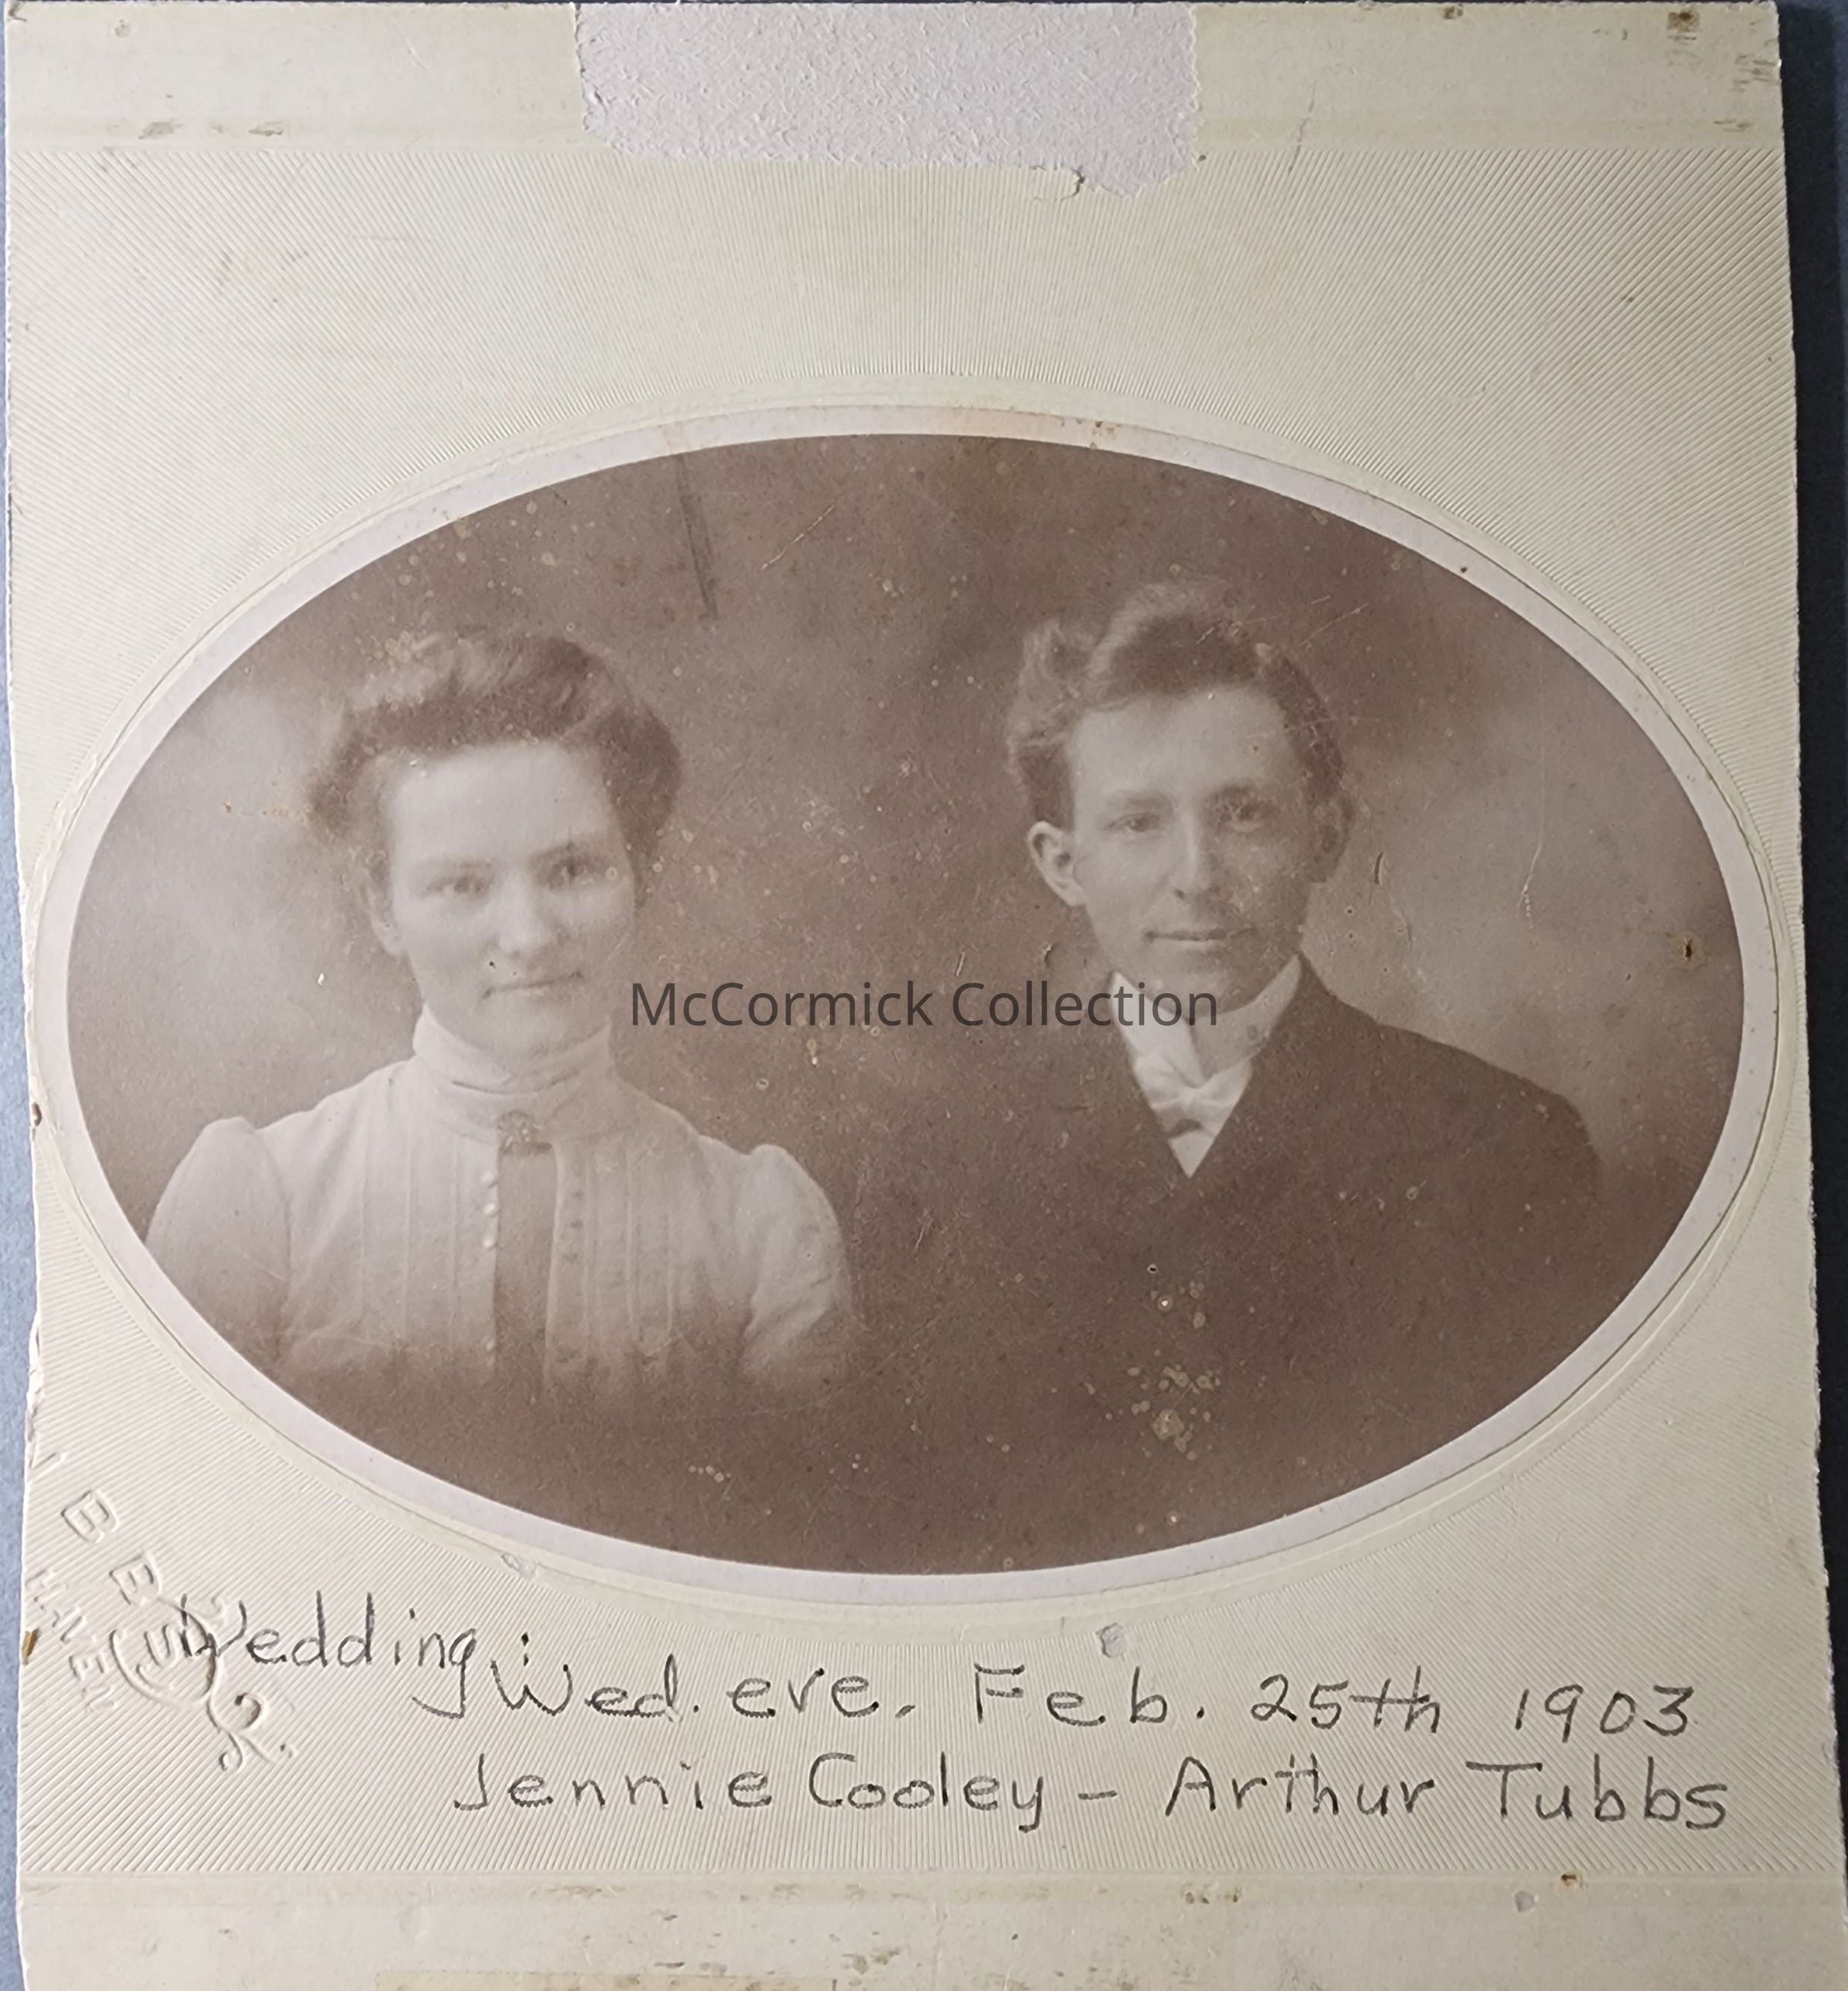 McCormick Collection
Wedding:
Wed. eve. Feb. 25th 1903
Jennie Cooley - Arthur Tubbs